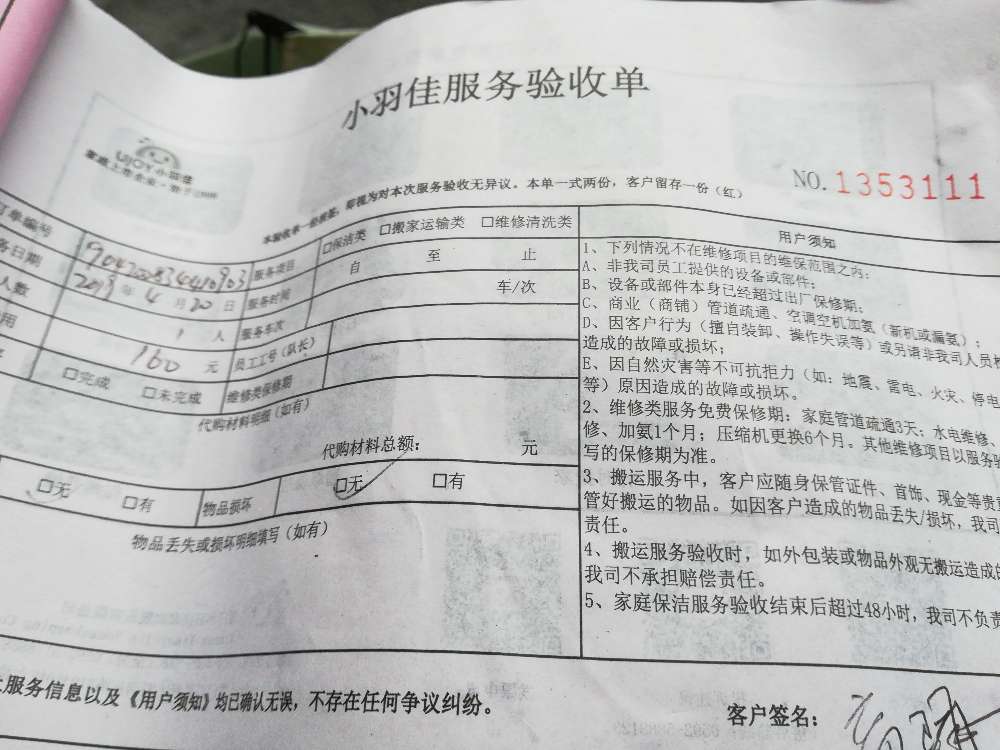 小羽佳服务验收单
UJOY小羽佳
NO.1353111
本验收单一经商签，即视为对本次服务验收无异议。本单一式两份，客户留存一份（红）
订单编号
服务项目 □保洁类 □搬家运输类 □维修清洗类
务日期 年4月20日 服务时间 自 至 止
人数 1 人 服务车次 车/次
用 160 元 员工工号（队长）
□完成 □未完成 维修类保修期
代购材料明细（如有）
代购材料总额： 元
□无 □有 物品损坏 □无 □有
物品丢失或损坏明细填写（如有）
用户须知
1、下列情况不在维修项目的维保范围之内：
A、非我司员工提供的设备或部件；
B、设备或部件本身已经超过出厂保修期；
C、商业（商铺）管道疏通、空调空机加氨（新机或漏氨）；
D、因客户行为（擅自装卸、操作失误等）或另请非我司人员
造成的故障或损坏；
E、因自然灾害等不可抗拒力（如：地震、雷电、火灾、停电
等）原因造成的故障或损坏。
2、维修类服务免费保修期：家庭管道疏通3天；水电维修、
修、加氨1个月；压缩机更换6个月。其他维修项目以服务
写的保修期为准。
3、搬运服务中，客户应随身保管证件、首饰、现金等贵
管好搬运的物品。如因客户造成的物品丢失/损坏，我司
责任。
4、搬运服务验收时，如外包装或物品外观无搬运造成
我司不承担赔偿责任。
5、家庭保洁服务验收结束后超过48小时，我司不负责
服务信息以及《用户须知》均已确认无误，不存在任何争议纠纷。
客户签名：